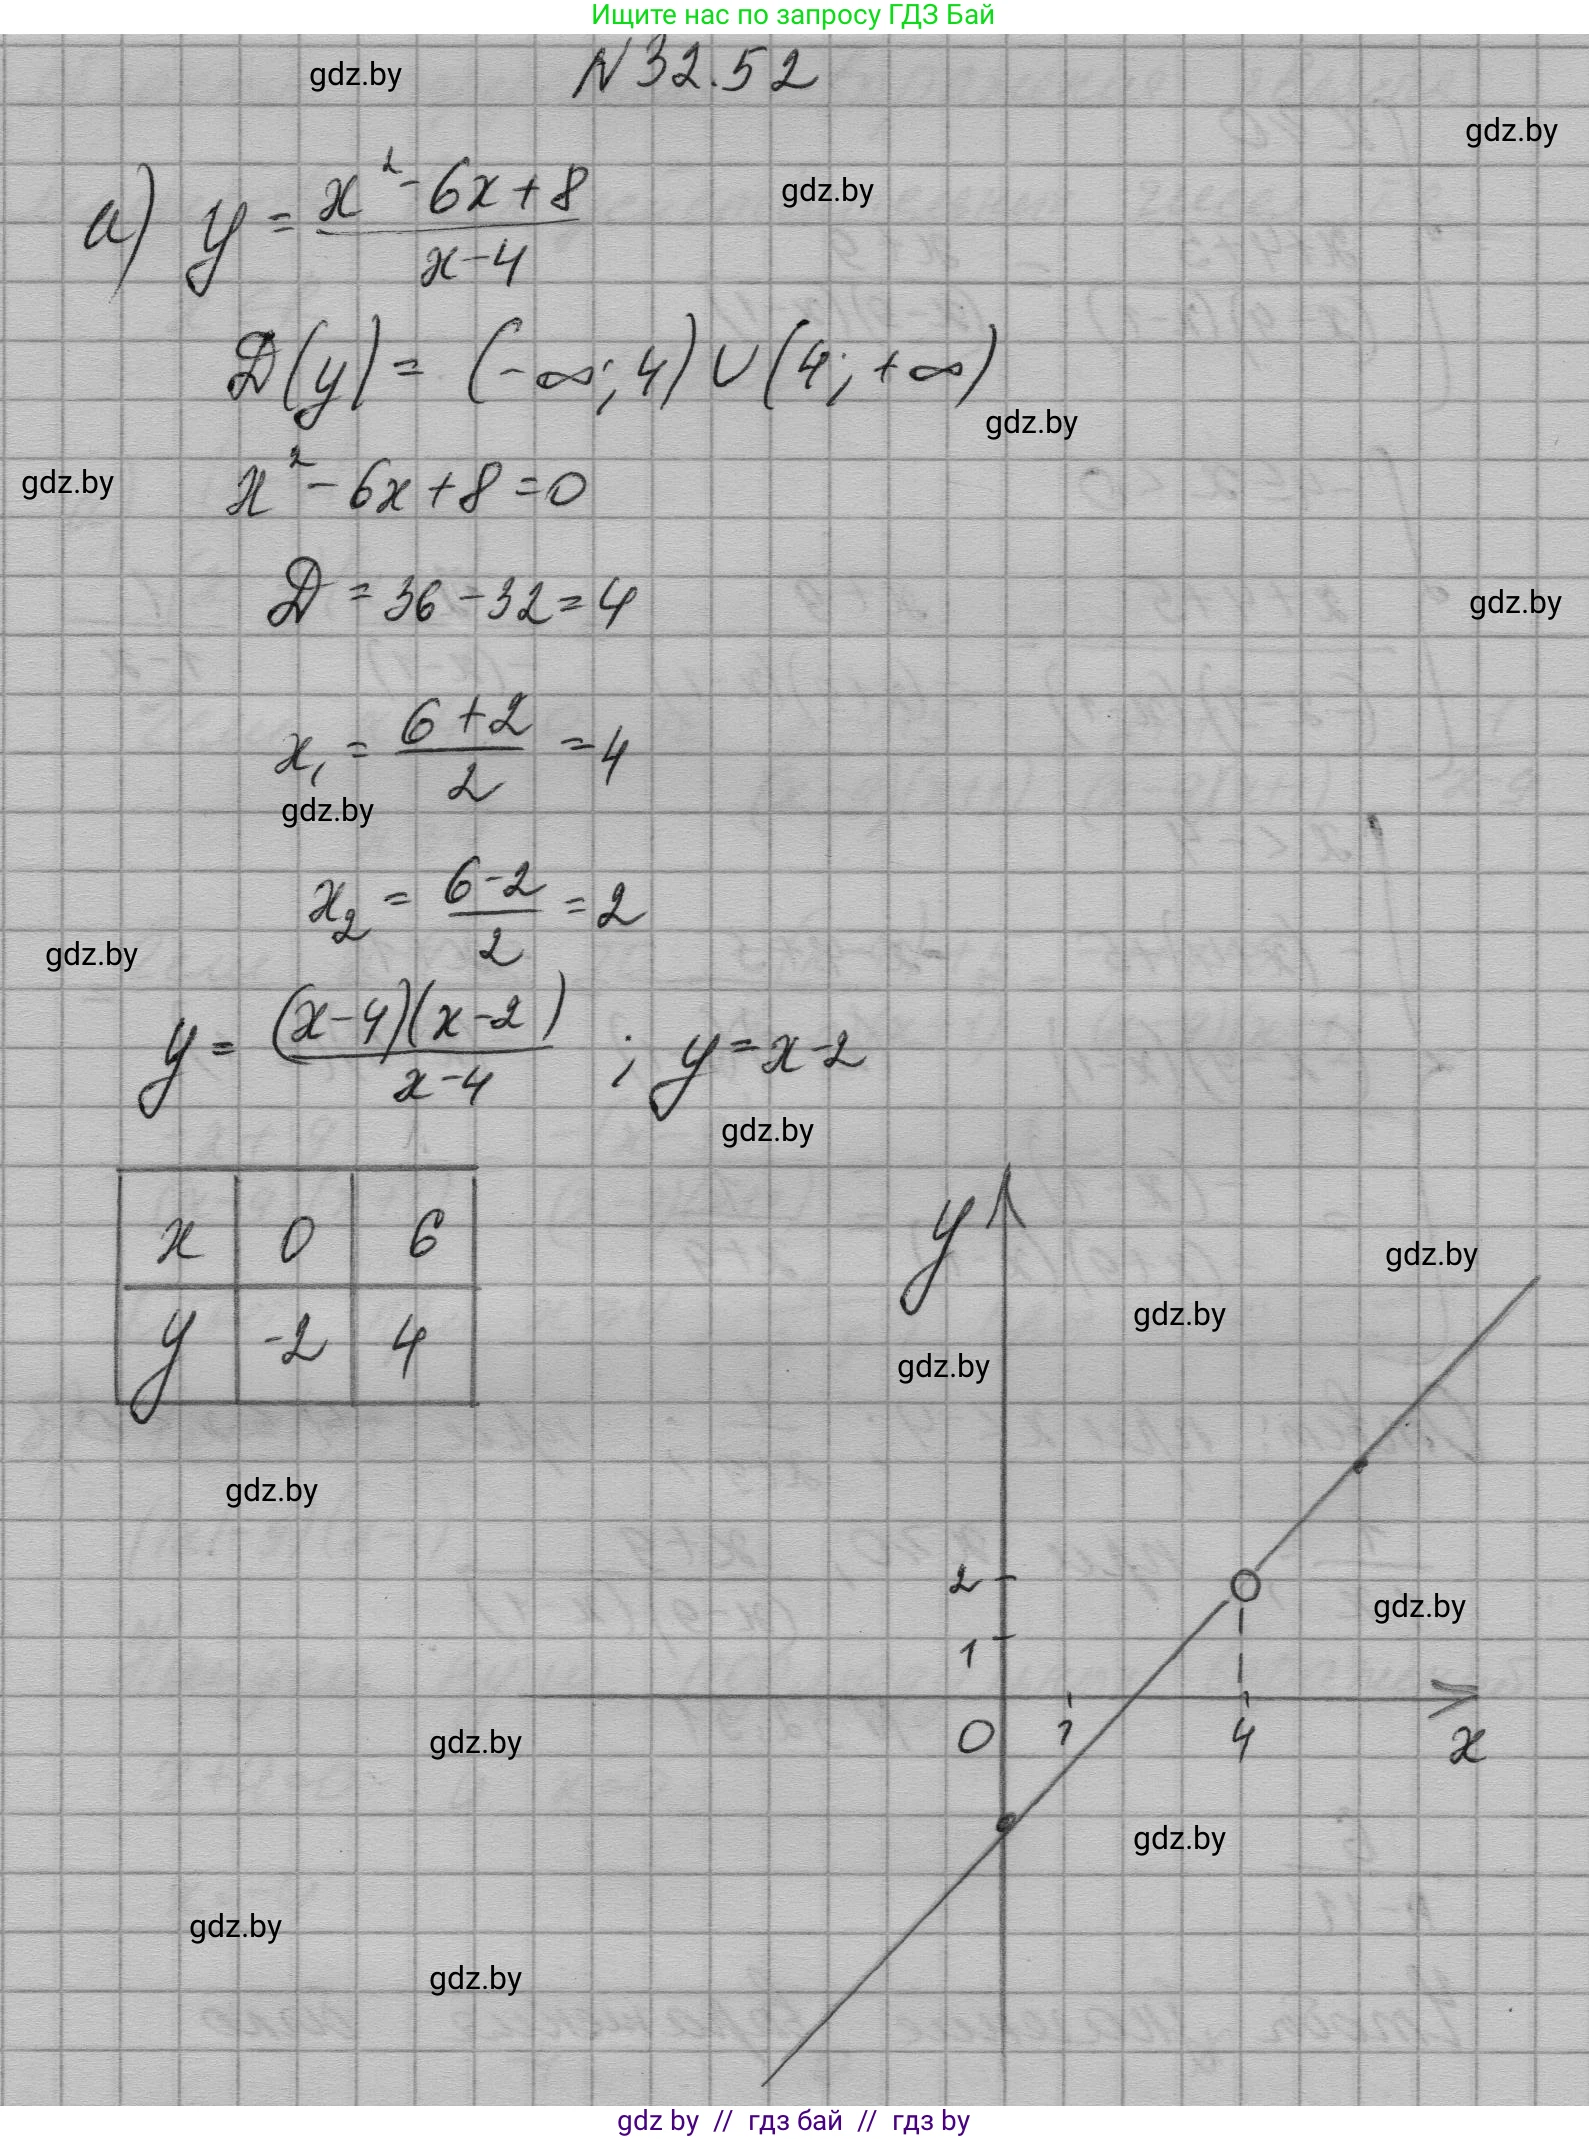 Ищите нас по запросу ГДЗ Бай
N 32.52
gdz.by
gdz.by
gdz.by
а) y = (x² - 6x + 8)/(x - 4)
D(y) = (-∞; 4) ∪ (4; +∞)
gdz.by
gdz.by
x² - 6x + 8 = 0
D = 36 - 32 = 4
gdz.by
x₁ = (6 + 2)/2 = 4
gdz.by
x₂ = (6 - 2)/2 = 2
gdz.by
y = ((x - 4)(x - 2))/(x - 4) ; y = x - 2
gdz.by
x 0 6
y -2 4
y
gdz.by
gdz.by
gdz.by
gdz.by
2
gdz.by
1
0 1 4 x
gdz.by
gdz.by
gdz.by
gdz.by
gdz by // гдз бай // гдз by